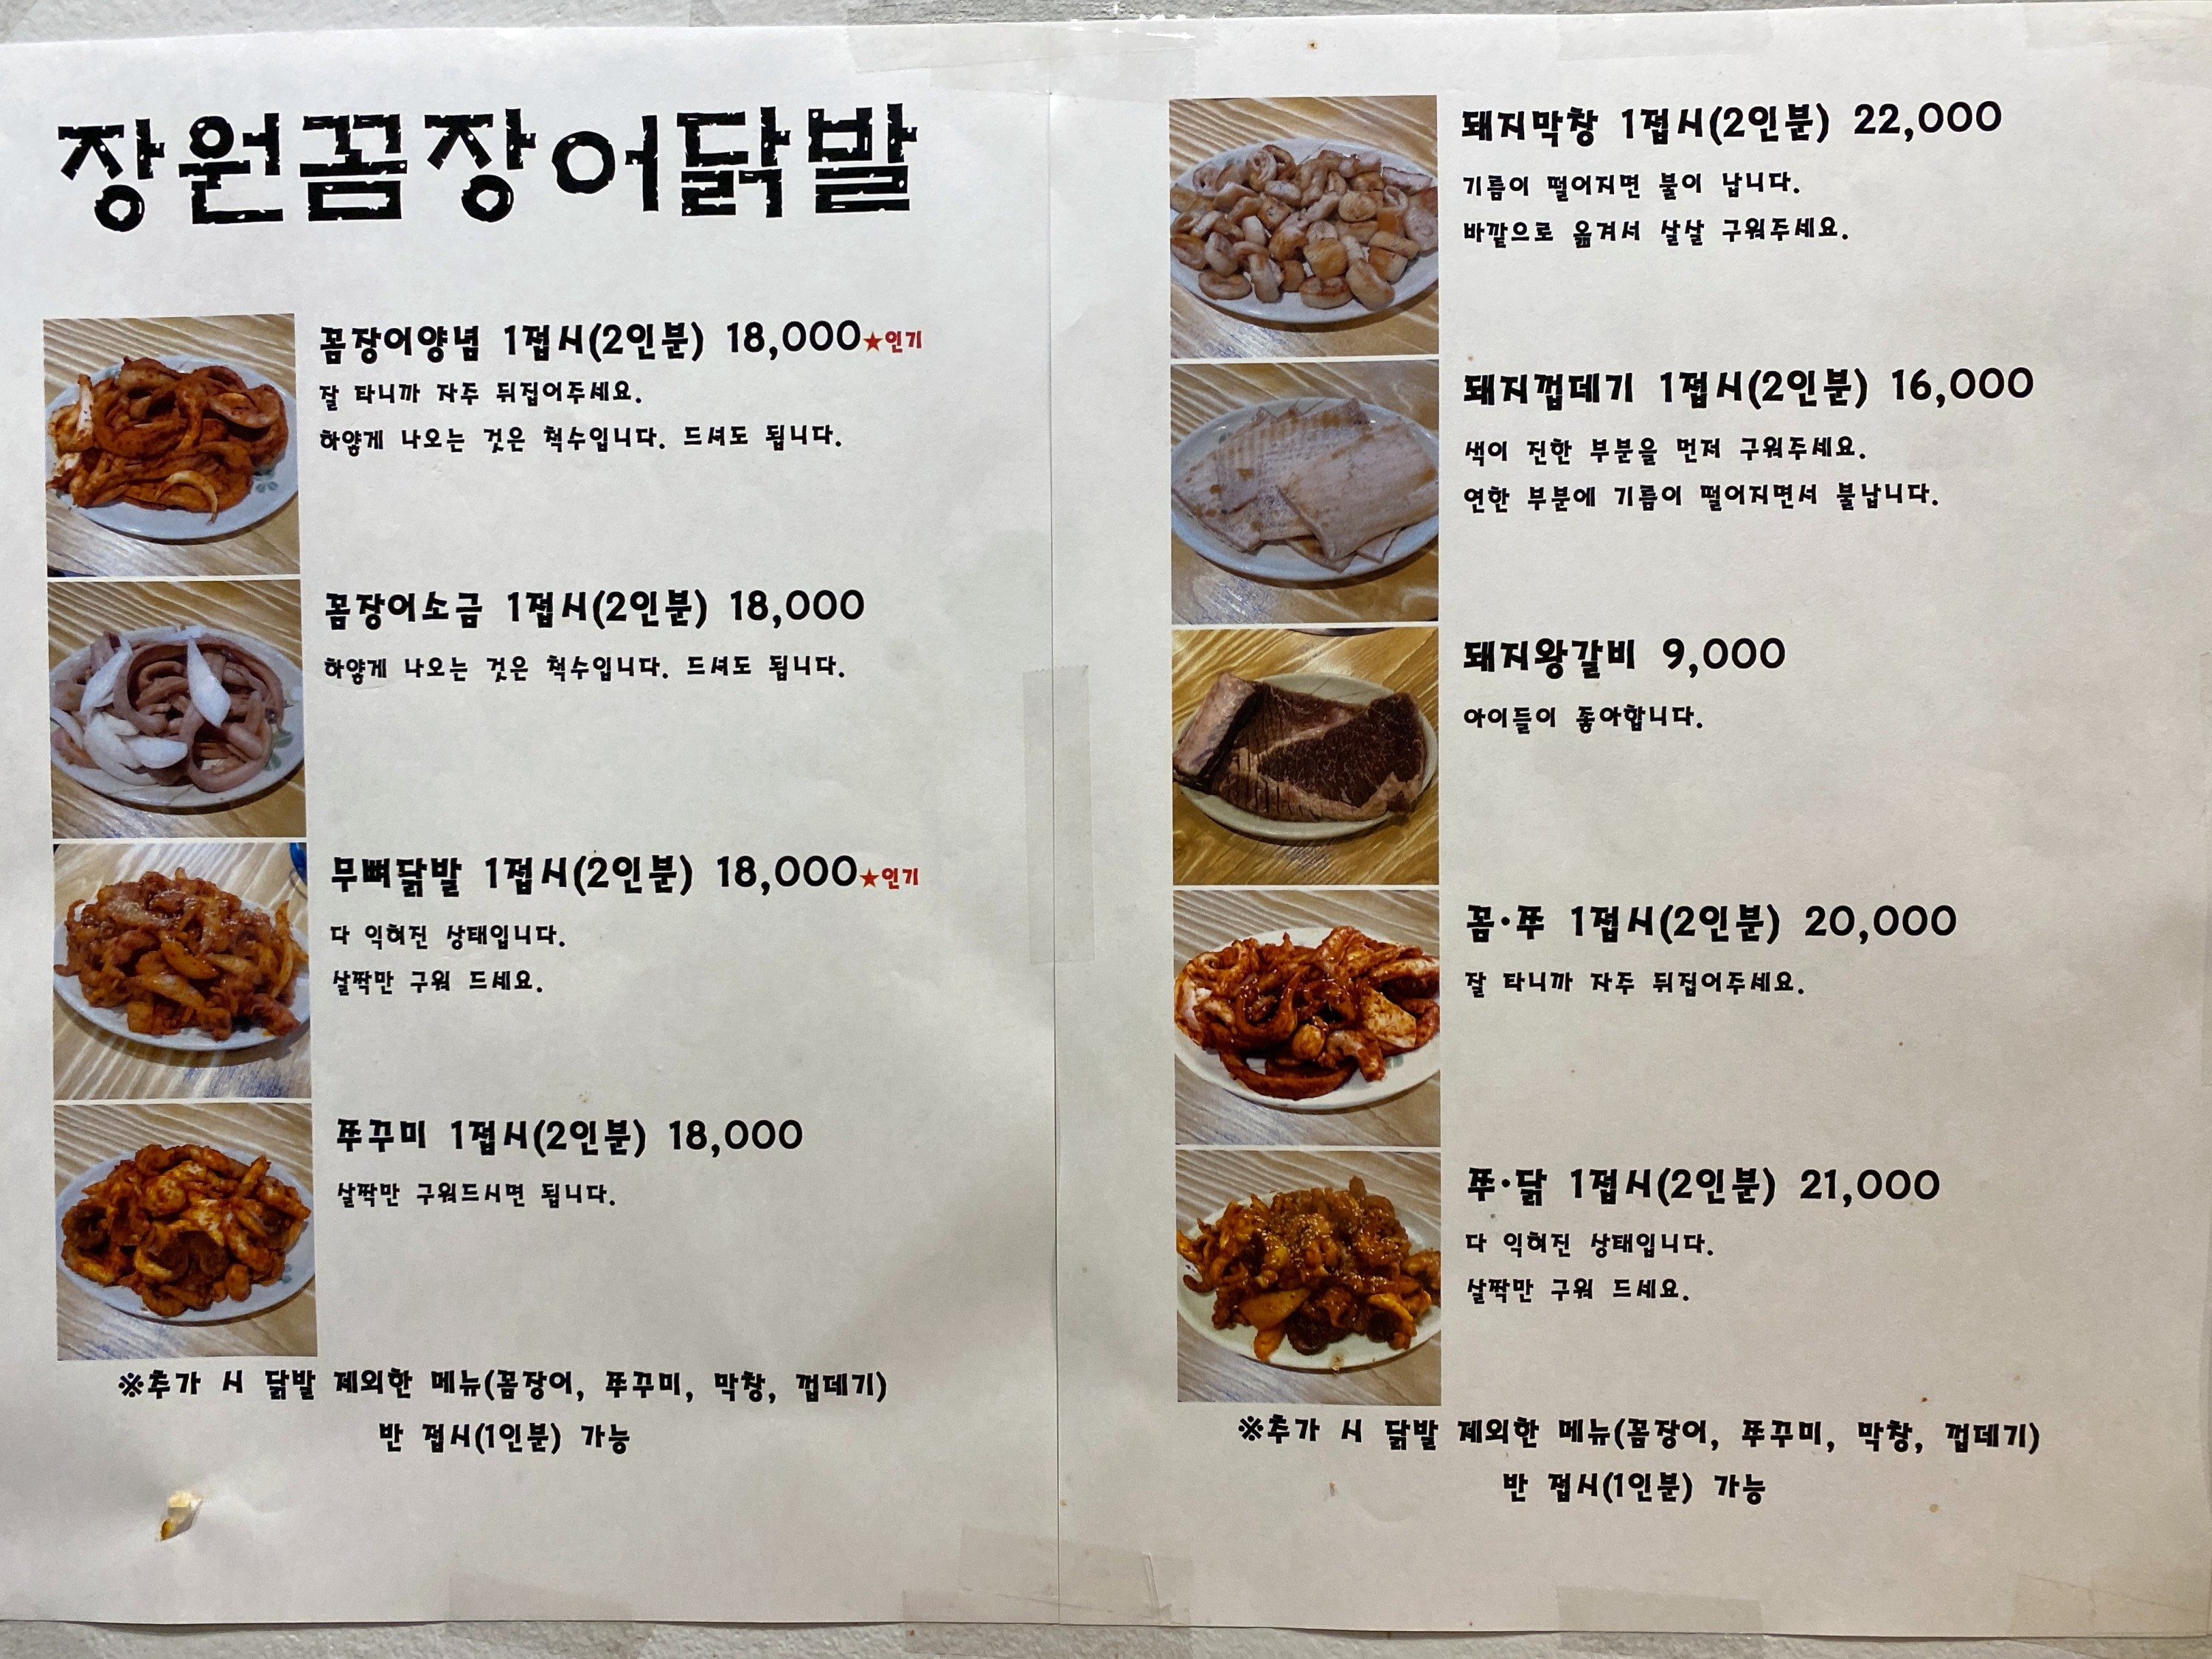 장원꼼장어닭발
꼼장어양념 1접시(2인분) 18,000★인기
잘 타니까 자주 뒤집어주세요.
하얗게 나오는 것은 척수입니다. 드셔도 됩니다.
꼼장어소금 1접시(2인분) 18,000
하얗게 나오는 것은 척수입니다. 드셔도 됩니다.
무뼈닭발 1접시(2인분) 18,000★인기
다 익혀진 상태입니다.
살짝만 구워 드세요.
쭈꾸미 1접시(2인분) 18,000
살짝만 구워드시면 됩니다.
※추가 시 닭발 제외한 메뉴(꼼장어, 쭈꾸미, 막창, 껍데기)
반 접시(1인분) 가능
돼지막창 1접시(2인분) 22,000
기름이 떨어지면 불이 납니다.
바깥으로 옮겨서 살살 구워주세요.
돼지껍데기 1접시(2인분) 16,000
색이 진한 부분을 먼저 구워주세요.
연한 부분에 기름이 떨어지면서 불납니다.
돼지왕갈비 9,000
아이들이 좋아합니다.
꼼·쭈 1접시(2인분) 20,000
잘 타니까 자주 뒤집어주세요.
쭈·닭 1접시(2인분) 21,000
다 익혀진 상태입니다.
살짝만 구워 드세요.
※추가 시 닭발 제외한 메뉴(꼼장어, 쭈꾸미, 막창, 껍데기)
반 접시(1인분) 가능